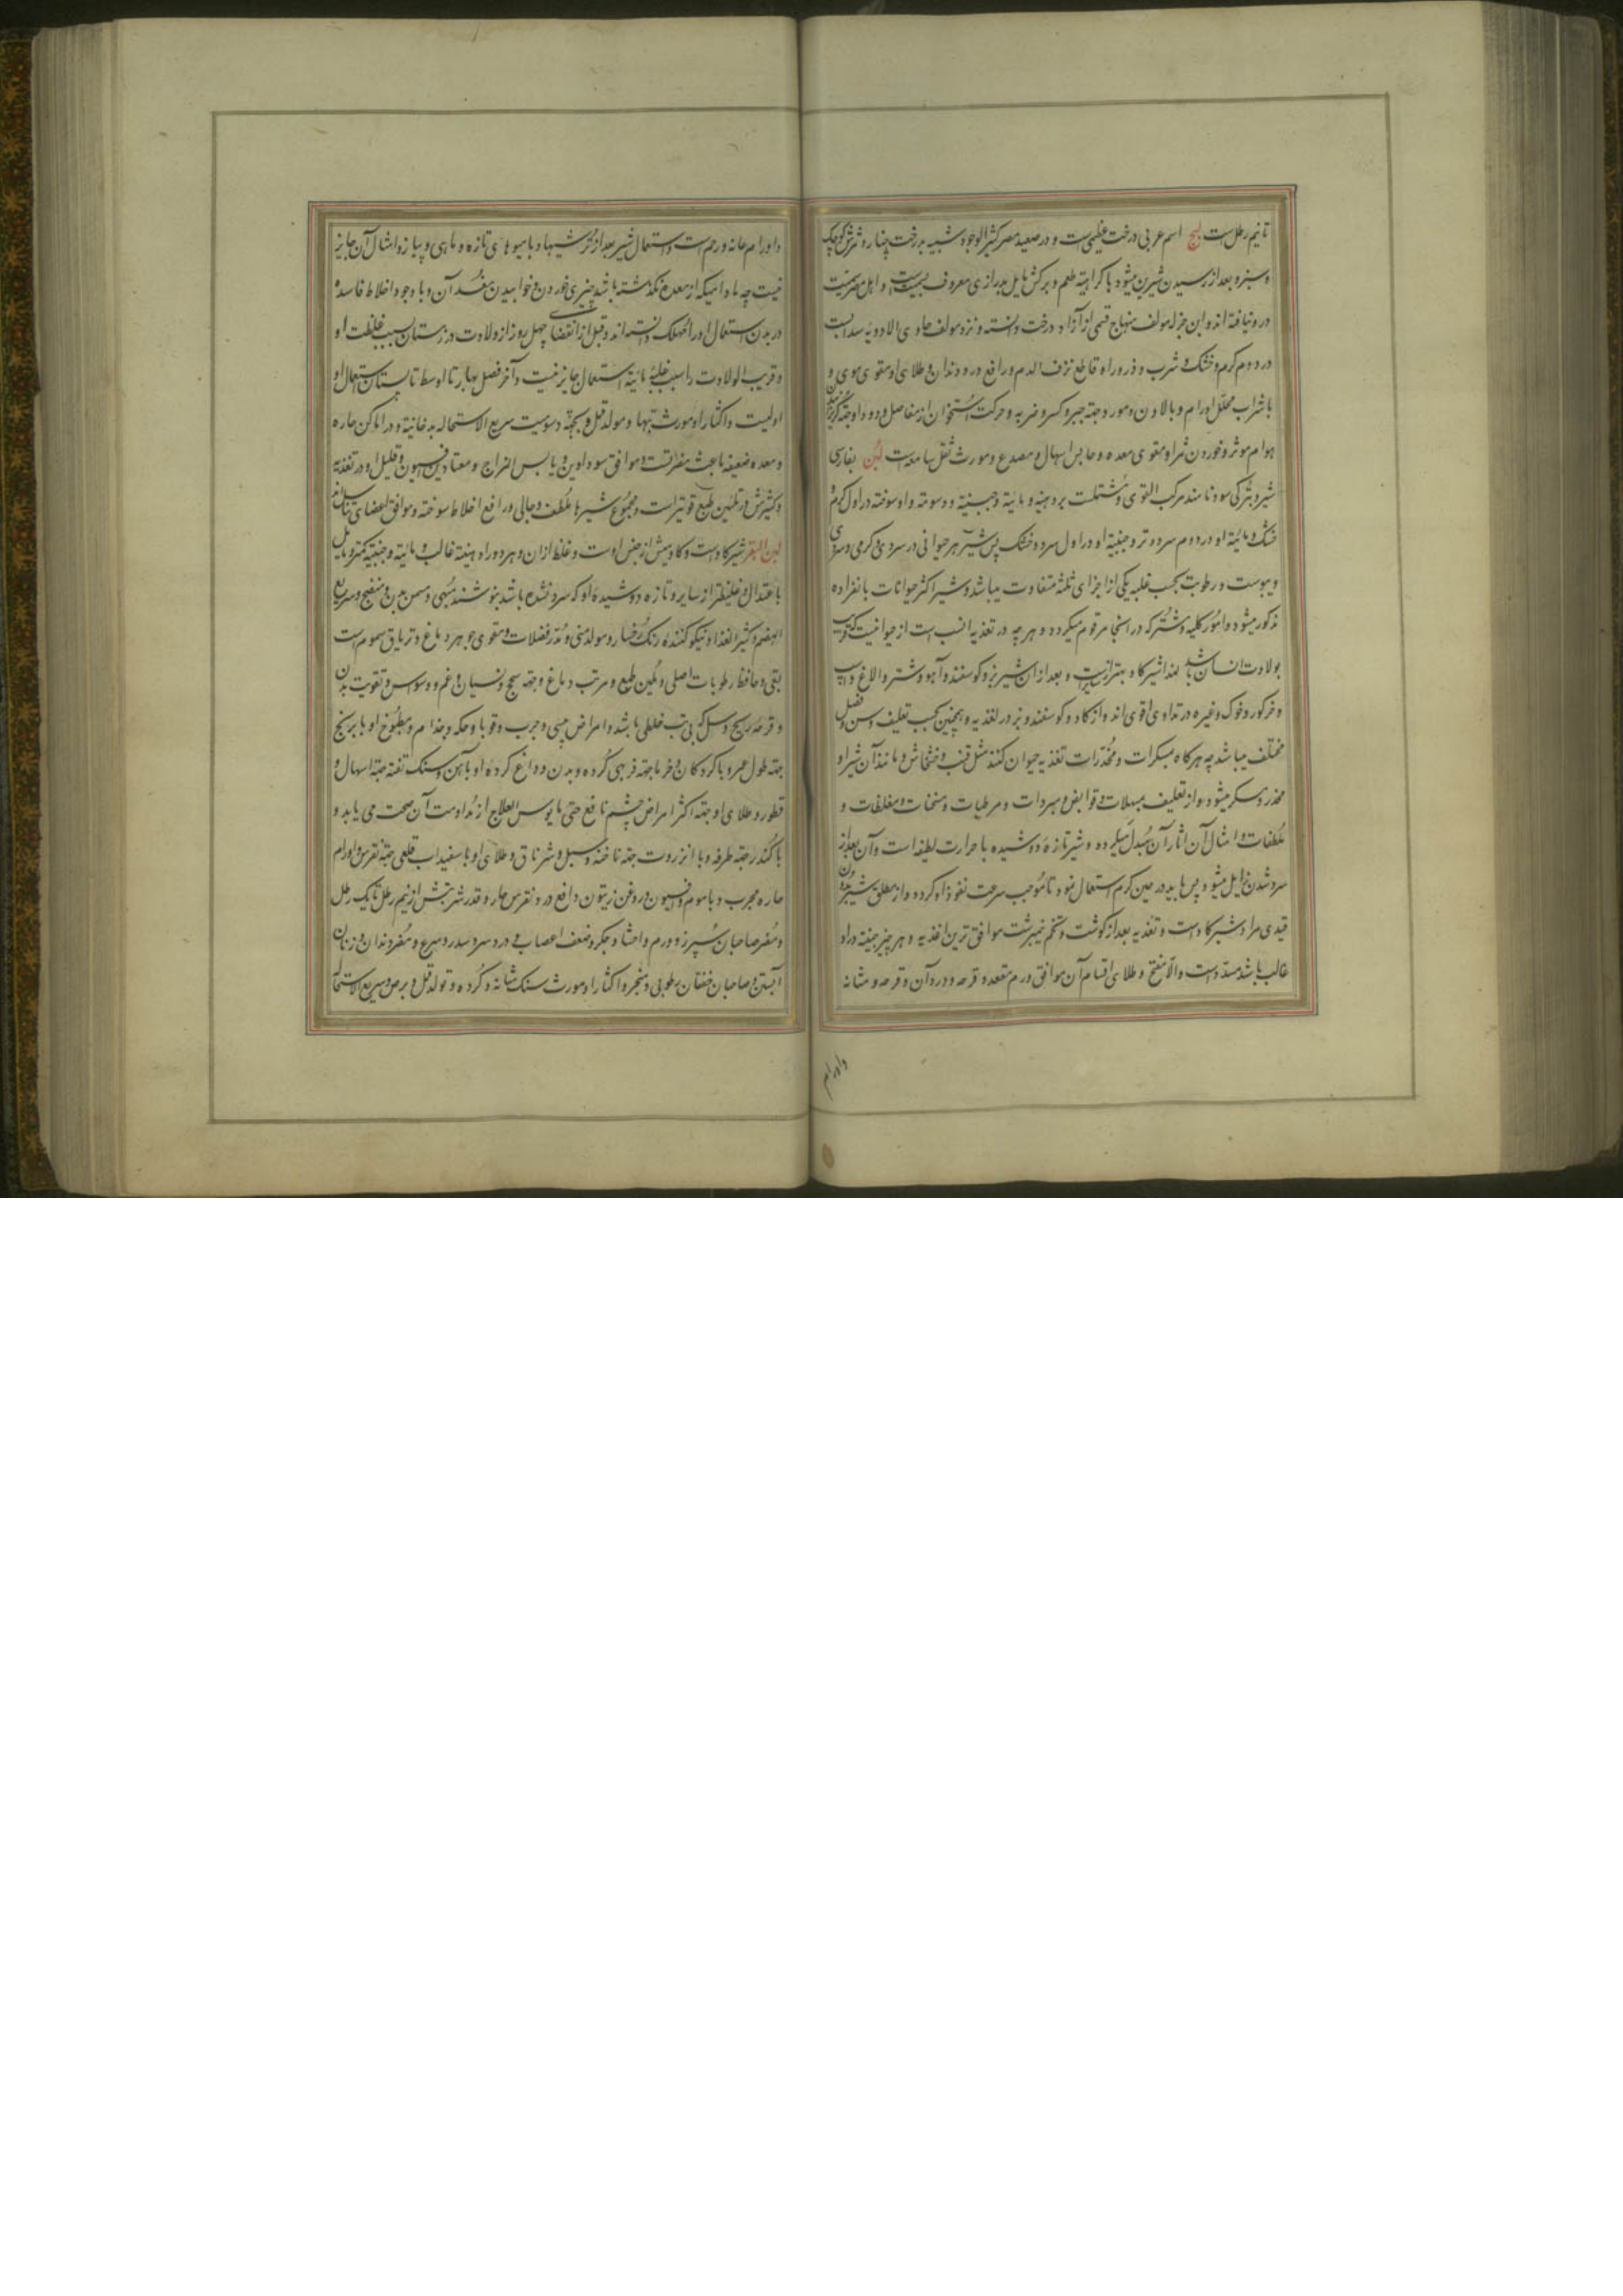 تا نیم رطل است لبخ اسم عربی درخت عظیمی است و در صعید مصر کثیر الوجود شبیه بدرخت چنار و ثمرش کوچک
و سبز و بعد از رسیدن شیرین میشود با کراهیة طعم و برکش مایل بدرازی معروف و اهل مصر سمیت
درو نیافته اند و ابن جزله مولف منهاج قسمی از آزاد درخت دانسته و نزد مولف حاوی الادویه سدابست
در دوم کرم و خشک و شرب و ذرور او قاطع نزف الدم و رافع درد دندان و طلای او مقوی موی و
با شراب محلل اورام و بالادن و مورد جهة جبر و کسر و ضربه و حرکت استخوان از مفاصل و دود او جهة
هوام موثر و خوردن ثمر او مقوی معده و حابس اسهال و مصدع و مورث ثقل سامعه است لبن بفارسی
شیر و بترکی سود نامند مرکب القوی و مشتملست بر دهنیة و مائیة و جبنیة و دسومته او سوخته در اول کرم و
خشک و مائیة او در دوم سرد و تر و جبنیة او در اول سرد و خشک پس شیر هر حیوانی در سردی و کرمی و تری
و یبوست و رطوبت بحسب غلبه یکی از اجزای ثلثه متفاوت میباشد و شیر اکثر حیوانات بانفراده
مذکور میشود و امور کلیه مشترکه در اینجا مرقوم میکردد و هر چه در تغذیه انسب است از حیوانیست که قریب
بولادت انسان باشد لهذا شیر کاو بهتر از سایر است و بعد از ان شیر بز و کوسفند و آهو و شتر و الاغ و اسب
و خر کور و خوک و غیره در تداوی اقوی اند و از کاو و کوسفند و بز در تغذیه و همچنین بحسب تعلیف و سن و فصل
مختلف میباشد چه هر کاه بمسکرات و مخدرات تغذیه حیوان کنند مثل قنب و خشخاش و مانند آن شیر او
مخدر و مسکر میشود و از تعلیف بمسهلات و قوابض و مبردات و مرطبات و مسخنات و مغلظات و
ملطفات و امثال آن اثار آن مبدل میکردد و شیر تازه دوشیده با حرارت لطیفه است و آن بعد از
سرد شدن زایل میشود پس باید در حین کرمی استعمال نمود تا موجب سرعت نفوذ او کردد و از مطلق شیر بدون
قیدی مراد شیر کاو است و تغذیه بعد از کوشت و تخم نیمبرشت موافق ترین اغذیه و هر چه جبنیة در او
غالب باشد مسدد است و الا مفتح و طلای اقسام آن موافق ورم مقعد و قرحه و درد آن و قرحه مثانه
و اورام
و اورام عانه و رحم است و استعمال شیر بعد از ترشیها و با میوهای تازه و ماهی و پیاز و امثال آن جایز
نیست چه مادامیکه از معده نکذشته باشد چیزی خوردن و خوابیدن مفسد آن و با وجود اخلاط فاسده
در بدن استعمال او را مهلک دانسته اند و قبل از انقضای چهل روز از ولادت و در زمستان بسبب غلظت او
و قریب الولادت را بسبب غلبه مائیة استعمال جایز نیست و آخر فصل بهار تا اوسط تابستان استعمال او
اولیست و اکثار او مورث تبها و مولد قمل و بجهة دسومیت سریع الاستحاله بدخانیة و در اماکن حاره
و معده ضعیفه باعث مضرتست و موافق سوداوین و یابس المزاج و معتادین افیون و قلیل او در تغذیه
و کثیرش در تلیین طبع قویتر است و مجموع شیرها ملطف و جالی و رافع اخلاط سوخته و موافق اعضای تناسل اند
لبن البقر شیر کاو است و کاومیش از جنس اوست و غلظ از ان و هر دو را دهنیة غالب و مائیة و جبنیه کمتر و مایل
باعتدال و غلیظتر از سایر و تازه دوشیده او که سرد نشده باشد بنوشند مبهی و مسمن بدن و منضج و سریع
الهضم و کثیر الغذا و نیکو کننده رنک رخسار و مولد منی و مدر فضلات و مقوی جوهر دماغ و تریاق سموم است
بقی و حافظ رطوبات اصلی و ملین طبع و مرتب دماغ و جهة سحج و نسیان و غم و وسواس و تقویت بدن
و قرحه ریه و سل که بی تب خلطی باشد و امراض یبسی و جرب و قوبا و حکه و جذام و مطبوخ او با برنج
جهة طول عمر و با کردکان و خرما جهة فربهی کرده و بدن و داغ کرده او باهن و سنک تفته جهة اسهال و
قطور و طلای او جهة اکثر امراض چشم نافع حتی مایوس العلاج از مداومت آن صحت می یابد و
با کندر جهة طرفه و با انزروت جهة ناخنه و سبل و شرناق و طلای او با سفیداب قلعی جهة نقرس و اورام
حاره مجرب و با موم و افیون و روغن زیتون دافع درد نقرس حار و قدر شربتش از نیم رطل تا یک رطل
و مضر صاحبان سپرز و ورم و احشا و جکر و ضعف اعصاب و درد سر و سدر و صرع و مضر دندان و زنان
آبستن و صاحبان خفقان رطوبی و منجر و اکثار او مورث سنک مثانه و کرده و تولد قمل و برص و سریع الاستحا